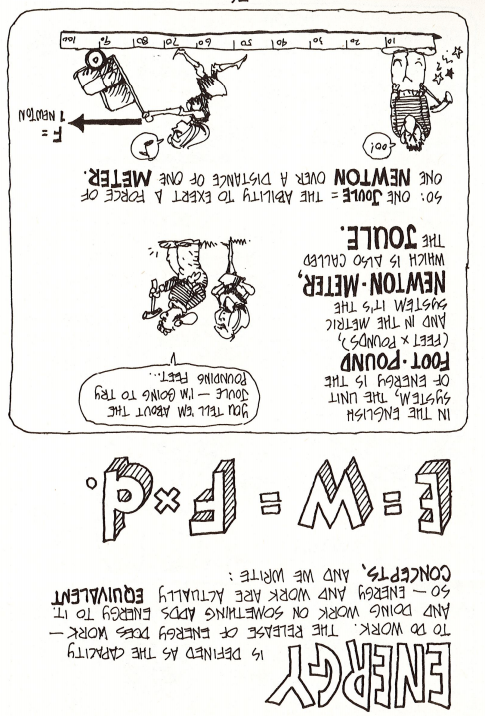 ENERGY IS DEFINED AS THE CAPACITY
TO DO WORK. THE RELEASE OF ENERGY DOES WORK —
AND DOING WORK ON SOMETHING ADDS ENERGY TO IT.
SO — ENERGY AND WORK ARE ACTUALLY EQUIVALENT
CONCEPTS, AND WE WRITE:
E = W = F × d.
IN THE ENGLISH
SYSTEM, THE UNIT
OF ENERGY IS THE
FOOT-POUND
(FEET × POUNDS),
AND IN THE METRIC
SYSTEM IT'S THE
NEWTON-METER,
WHICH IS ALSO CALLED
THE JOULE.
YOU TELL 'EM ABOUT THE
JOULE — I'M GOING TO TRY
POUNDING FEET...
SO: ONE JOULE = THE ABILITY TO EXERT A FORCE OF
ONE NEWTON OVER A DISTANCE OF ONE METER.
OO!
F =
1 NEWTON
10 20 30 40 50 60 70 80 90 100